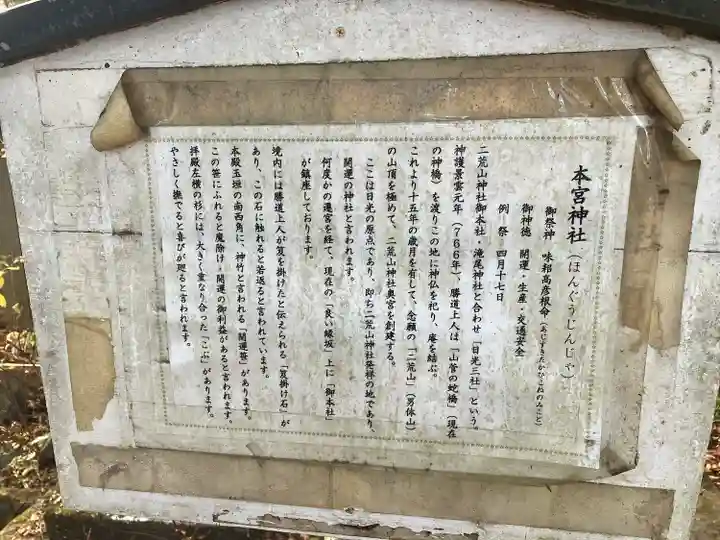 本宮神社(ほんぐうじんじゃ)
御祭神 味耜高彦根命(あじすきたかひこねのみこと)
御神徳 開運・生産・交通安全
例祭 四月十七日
二荒山神社御本社・滝尾神社と合わせ「日光三社」という。
神護景雲元年(766年)、勝道上人は「山菅の蛇橋」(現在
の神橋)を渡りこの地に神仏を祀り、庵を結ぶ。
これより十五年の歳月を有して、念願の「二荒山」(男体山)
の山頂を極めて、二荒山神社奥宮を創建する。
ここは日光の原点であり、即ち二荒山神社発祥の地であり、
開運の神社と言われます。
何度かの遷宮を経て、現在の「良い縁坂」上に「御本社」
が鎮座しております。
境内には勝道上人が笈を掛けたと伝えられる「笈掛け石」が
あり、この石に触れると若返ると言われています。
本殿玉垣の南西角に、神竹と言われる「開運笹」があります。
この笹にふれると魔除け・開運の御利益があると言われます。
拝殿左横の杉には、大きく重なり合った「こぶ」があります。
やさしく撫でると喜びが廻ると言われます。